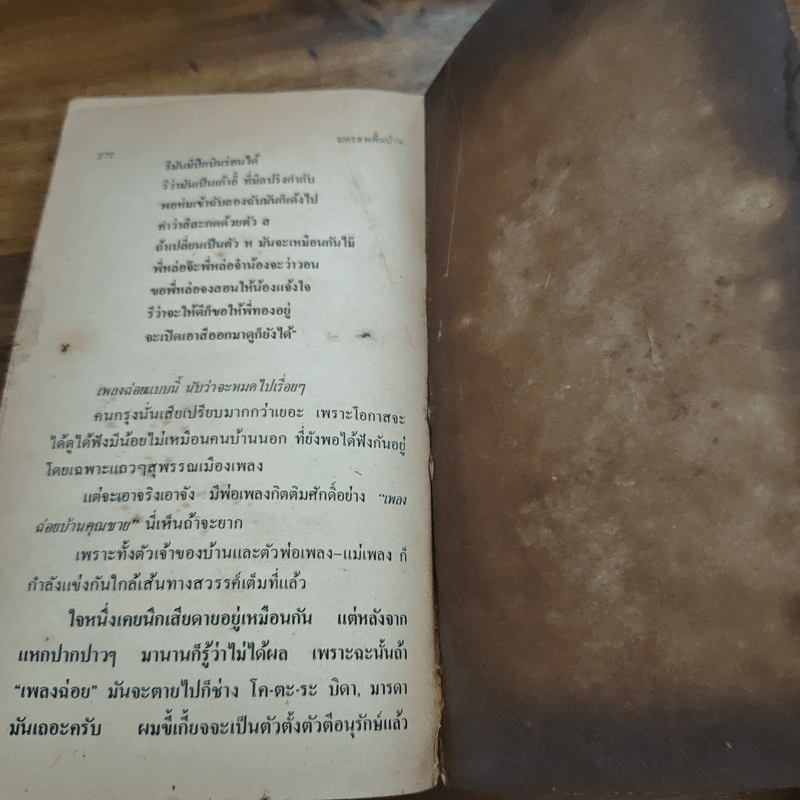 มหรสพพื้นบ้าน
รึมันมีปีกบินร่อนได้
รึว่ามันเป็นเก้าอี้ ที่มีสปริงกำกับ
พอห่มเข้าฉับลองฉับมันก็เด้งไป
คำว่าสีสะกดด้วยตัว ส
ถ้าเปลี่ยนเป็นตัว ห มันจะเหมือนกันไม๊
พี่หล่อจ๊ะพี่หล่อจ๋าน้องจะว่าวอน
ขอพี่หล่อจงสอนให้น้องแจ้งใจ
รึว่าจะให้ดีก็ขอให้พี่ทองอยู่
จะเปิดเอาสีออกมาดูก็ยังได้"
เพลงฉ่อยแบบนี้ นับว่าจะหมดไปเรื่อยๆ
คนกรุงนั่นเสียเปรียบมากกว่าเยอะ เพราะโอกาสจะ
ได้ดูได้ฟังมีน้อยไม่เหมือนคนบ้านนอก ที่ยังพอได้ฟังกันอยู่
โดยเฉพาะแถวๆสุพรรณเมืองเพลง
แต่จะเอาจริงเอาจัง มีพ่อเพลงกิตติมศักดิ์อย่าง "เพลง
ฉ่อยบ้านคุณชาย" นี่เห็นถ้าจะยาก
เพราะทั้งตัวเจ้าของบ้านและตัวพ่อเพลง–แม่เพลง ก็
กำลังแข่งกันใกล้เส้นทางสวรรค์เต็มที่แล้ว
ใจหนึ่งเคยนึกเสียดายอยู่เหมือนกัน แต่หลังจาก
แหกปากปาวๆ มานานก็รู้ว่าไม่ได้ผล เพราะฉะนั้นถ้า
"เพลงฉ่อย" มันจะตายไปก็ช่าง โค-ตะ-ระ บิดา, มารดา
มันเถอะครับ ผมขี้เกี้ยจจะเป็นตัวตั้งตัวตีอนุรักษ์แล้ว